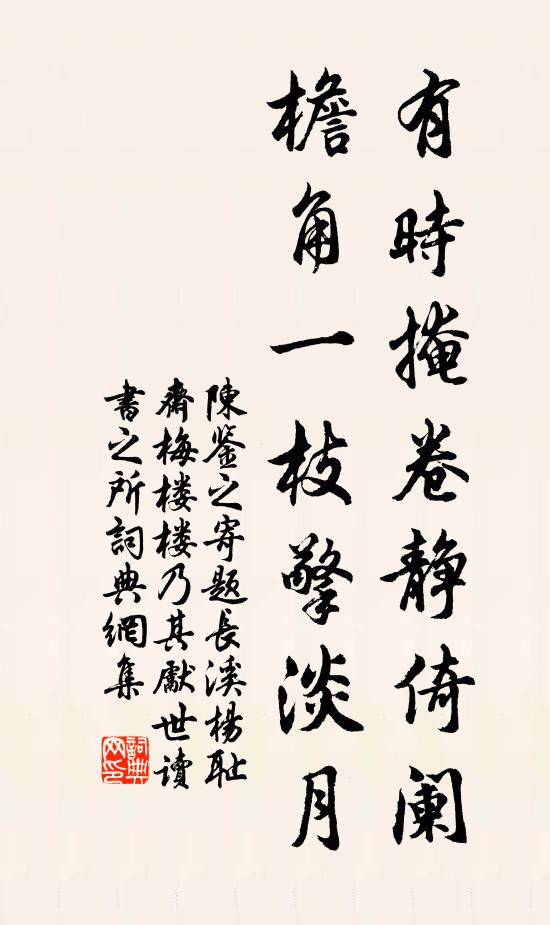 有時掩卷静倚阑
檐角一枝擎淡月
陳鉴之寄題長溪楊耻
齋梅楼楼乃其獻世讀
書之所詞典網集
詞典网印